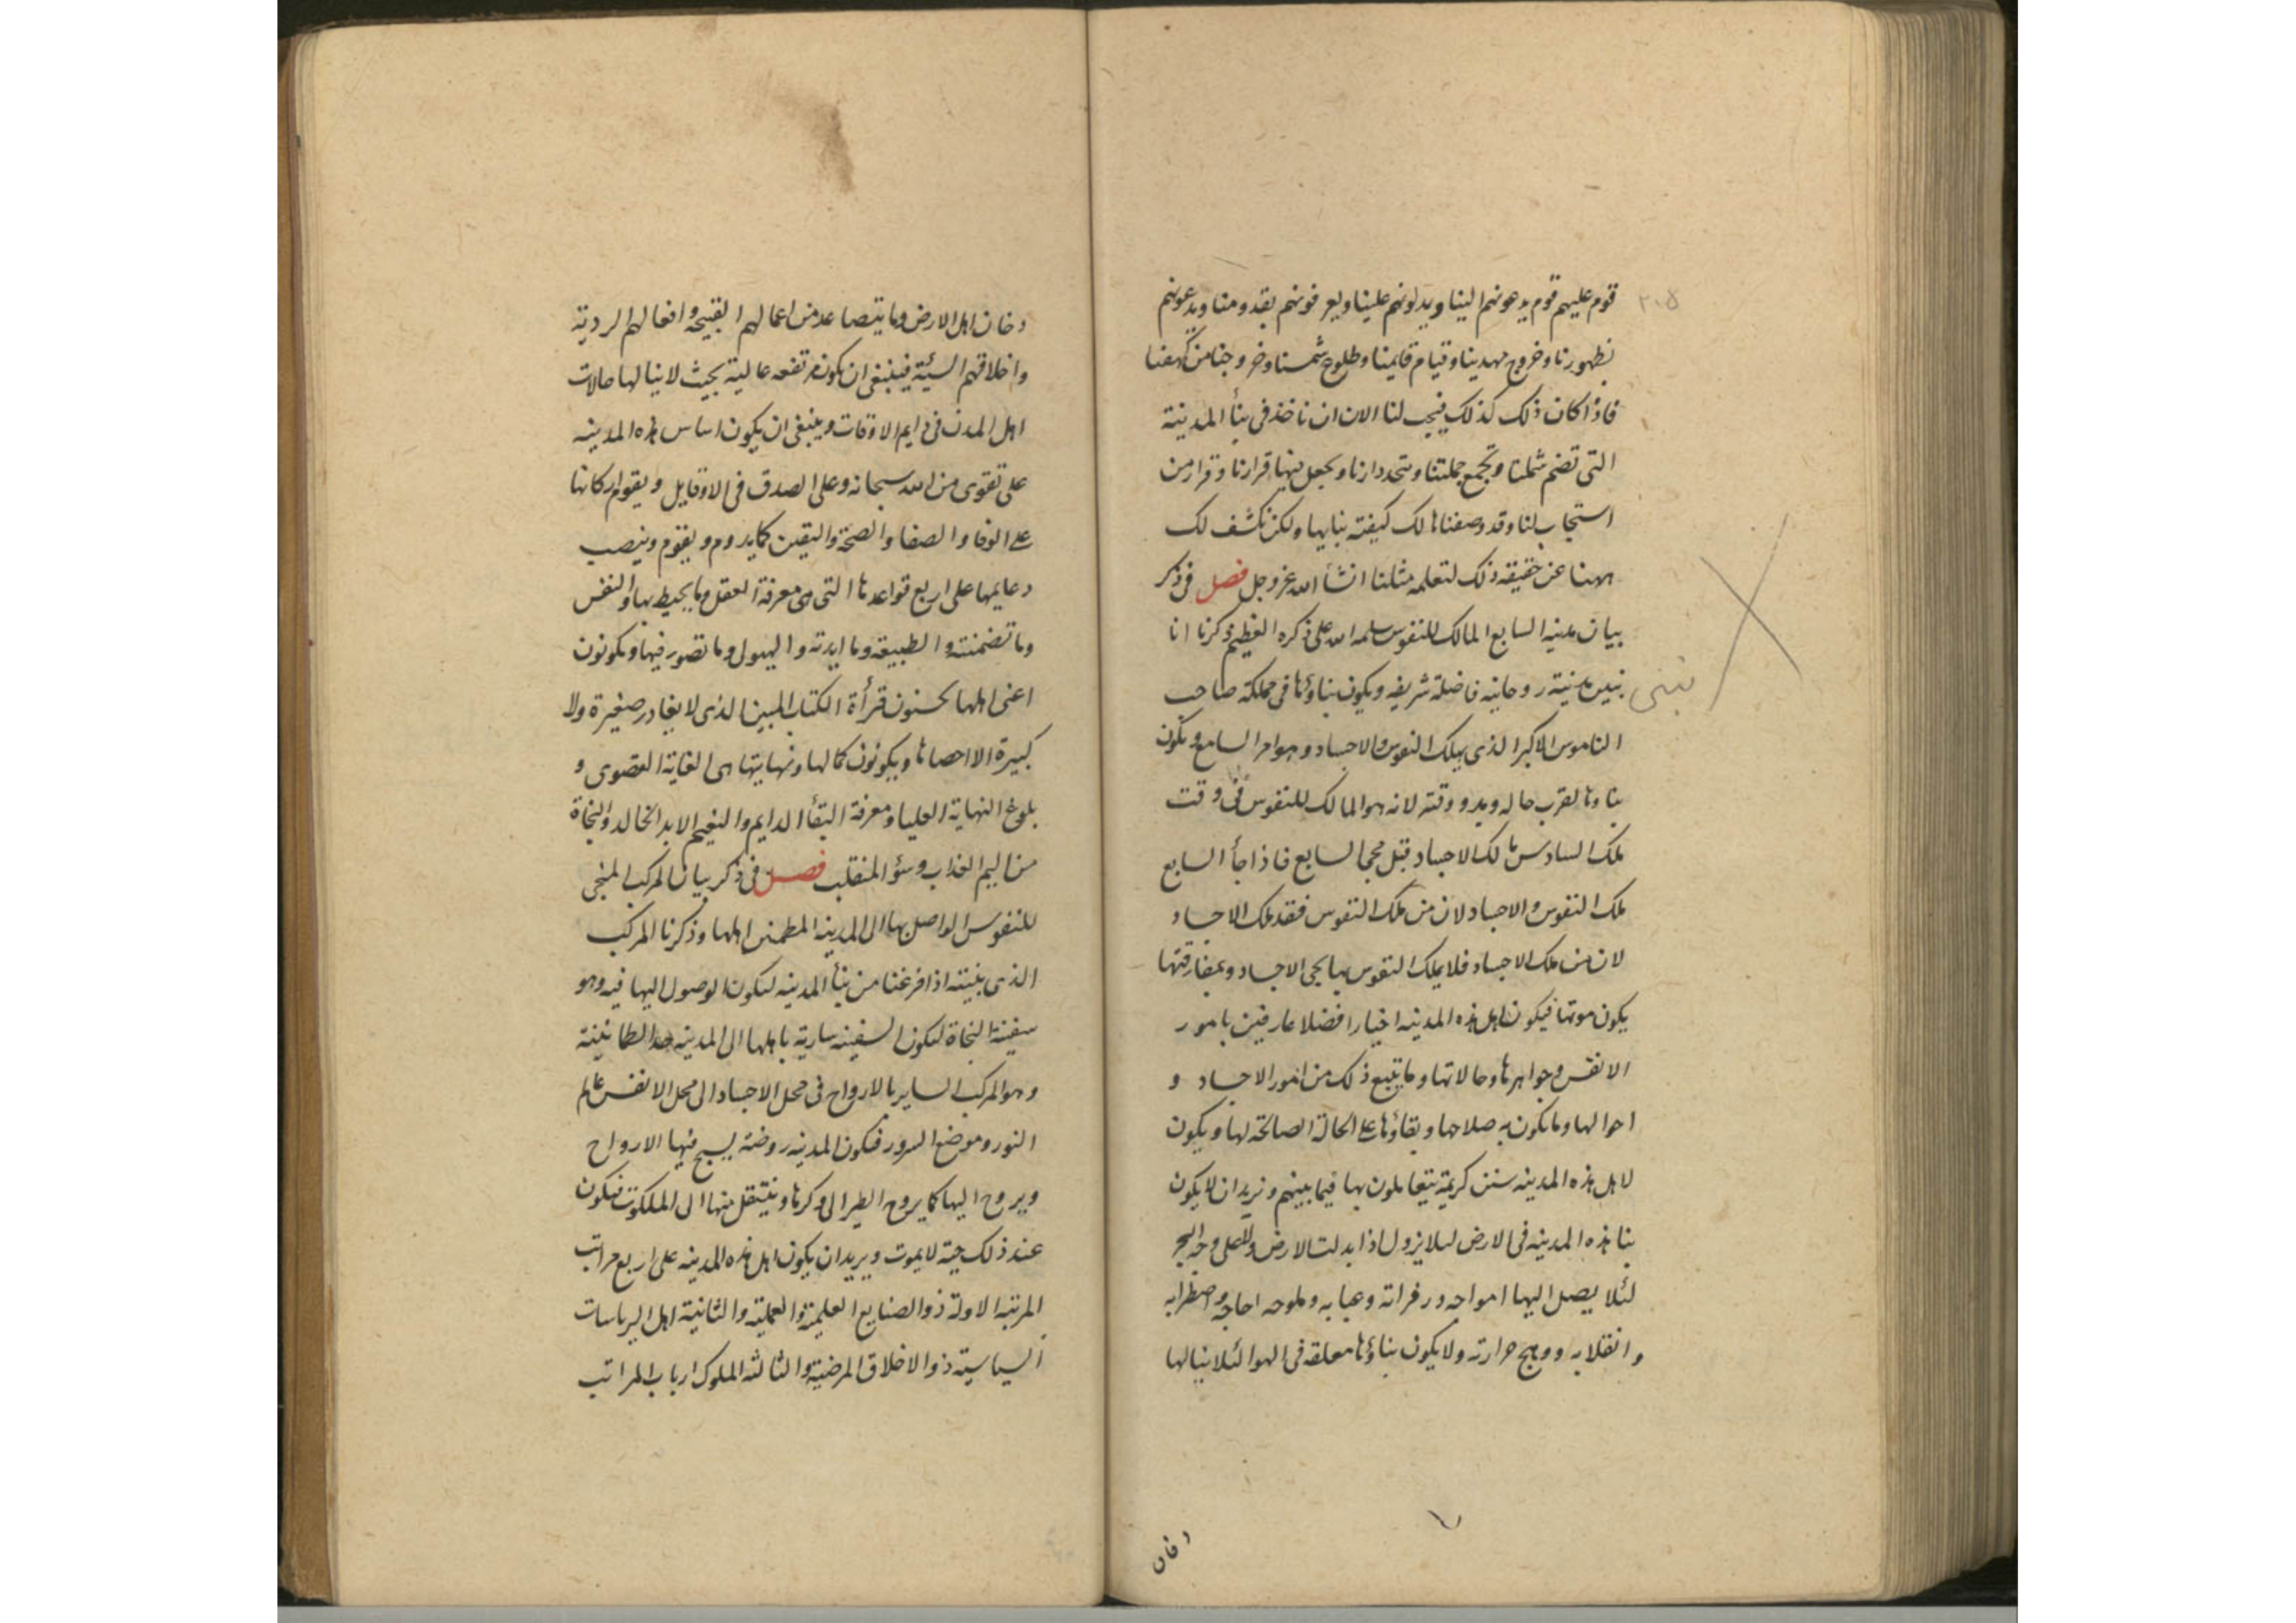 ٢٠٥
قوم عليهم قوم يدعونهم الينا ويدلونهم علينا ويعرفونهم بقدومنا ويدعونهم
بظهورنا وخروج مهدينا وقيام قايمنا وطلوع شمسنا وخروجنا من كهفنا
فاذا كان ذلك كذلك فيجب لنا الان ان ناخذ فى بنأ المدينة
التى تضم شملنا وتجمع جملتنا وتتحد دارنا ويجعل فيها قرارنا وقرار من
استجاب لنا وقد وصفنا لك كيفة بنايها ولكن نكشف لك
ههنا عن حقيقة ذلك لتعلمه مثلنا انشأ الله عز وجل فصل فى ذكر
بيان مدينه السابع المالك للنفوس سلمه الله على ذكره العظيم ذكرنا انا
نبنى مدنية روحانيه فاضلة شريفه ويكون بناؤها فى مملكة صاحب
نبنى
الناموس الاكبر الذى يملك النفوس والاجساد وهو امر السابع ويكون
بناوها لقرب حاله وبدو وقته لانه هو المالك للنفوس فى وقت
ملك السادس مالك الاجساد قبل مجى السابع فاذا جأ السابع
ملك النفوس والاجساد لان من ملك النفوس فقد ملك الاجساد
لان من ملك الاجساد فلا يملك النفوس بها يحيى الاجساد وبمفارقتها
يكون موتها فيكون اهل هذه المدينه اخيارا فضلا عارفين بامور
الانفس وجواهرها وحالاتها وما يتبع ذلك من امور الاجساد و
احوالها وما يكون به صلاحها وبقاؤها على الحالة الصالحة لها ويكون
لاهل هذه المدينه سنن كريمة يتعاملون بها فيما بينهم ونريد ان لا يكون
بنا هذه المدينه فى الارض ليلا يزول اذا بدلت الارض ولا على وجه البحر
لئلا يصل اليها امواجه وزفراته وعبابه وملوحه اجاجه واضطرابه
وانقلابه ووهج حرارته ولا يكون بناؤها معلقه فى الهوا لئلا ينالها
دخان
دخان اهل الارض وما يتصاعد من اعمالهم القبيحة وافعالهم الردية
واخلاقهم السيئة فينبغى ان يكون مرتفعه عالية بحيث لا ينالها حالات
اهل المدن فى دايم الاوقات وينبغى ان يكون اساس هذه المدينه
على تقوى من الله سبحانه وعلى الصدق فى الاوقايل ويقوم اركانها
على الوفا والصفا والصحة واليقين كما يدوم ويقوم وينصب
دعايمها على اربع قواعدها التى هى معرفة العقل وما يحيط بها والنفس
وما تضمنته والطبيعه وما ابدته والهيولى وما تصور فيها ويكونون
اعنى اهلها يحسنون قرأة الكتاب المبين الذى لا يغادر صغيرة ولا
كبيرة الا احصاها ويكونون كمالها ونهايتها هى الغاية القصوى و
بلوغ النهاية العليا ومعرفة البقأ الدايم والنعيم الابد الخالد والنجاة
من اليم العذاب وسؤ المنقلب فصل فى ذكر بيان المركب المنجى
للنفوس الواصل بها الى المدينه المطمئن اهلها وذكرنا المركب
الذى بنيته اذا فرغنا من بنأ المدينه ليكون الوصول اليها فيه وهو
سفينة النجاة ليكون السفينه سارية باهلها الى المدينه الطمانينة
وهو المركب الساير بالارواح فى محل الاجساد الى محل الانفس عالم
النور وموضع السرور فيكون المدينه روضة يسبح فيها الارواح
ويروح اليها كما يروح الطير الى وكرها وينتقل منها الى الملكوت فيكون
عند ذلك حية لا يموت ويريد ان يكون اهل هذه المدينه على اربع مراتب
المرتبه الاولة ذو الصنايع العلمية والعملية والثانية اهل الرياسات
السياسية ذو الاخلاق المرضية والثالثه الملوك ارباب المراتب